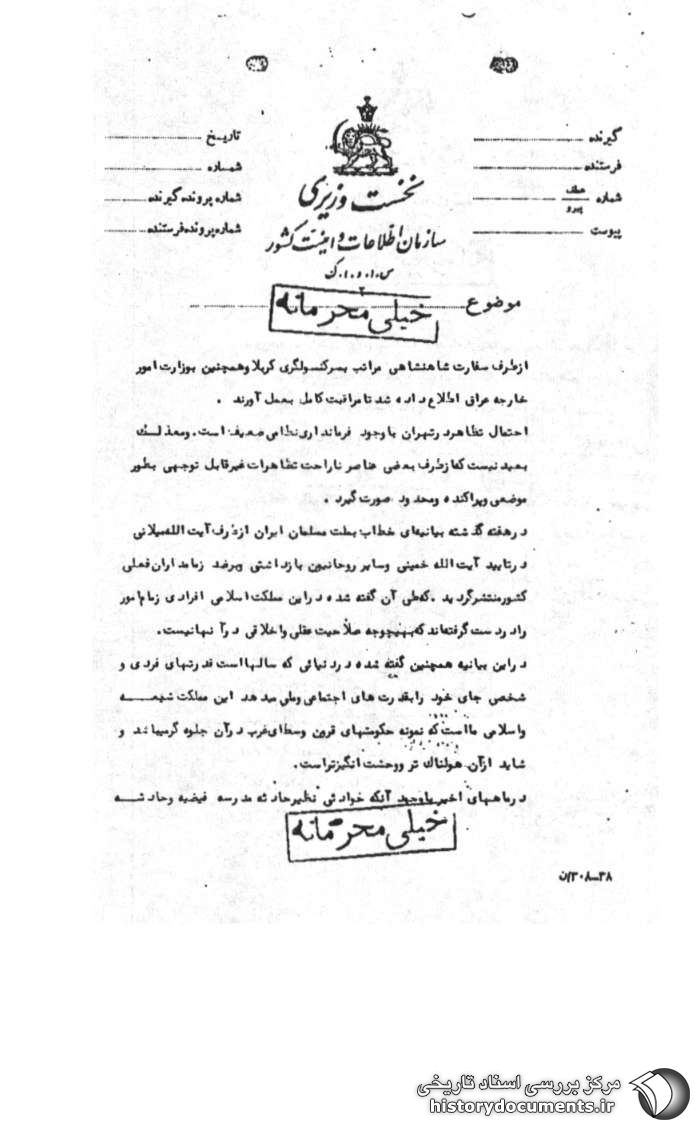 گیرنده
فرستنده
شماره عطف پیرو
پیوست
تاریخ
شماره
شماره پرونده گیرنده
شماره پرونده فرستنده
نخست وزیری
سازمان اطلاعات و امنیت کشور
س.ا.و.ا.ک
۲
موضوع
خیلی محرمانه
ازطرف سفارت شاهنشاهی مراتب بسرکنسولگری کربلا وهمچنین بوزارت امور
خارجه عراق اطلاع داده شد تا مراقبت کامل بعمل آورند .
احتمال تظاهر درتهران باوجود فرمانداری نظامی ضعیف است. ومعذلک
بعید نیست که ازطرف بعضی عناصر ناراحت تظاهرات غیرقابل توجهی بطور
موضعی وپراکنده ومحدود صورت گیرد .
درهفته گذشته بیانیه‌ای خطاب بملت مسلمان ایران ازطرف آیت الله میلانی
درتایید آیت الله خمینی وسایر روحانیون بازداشتی وبرضد زمامداران فعلی
کشور منتشر گردید .که طی آن گفته شده دراین مملکت اسلامی افرادی زمام امور
را دردست گرفته‌اند که بهیچوجه صلاحیت عقلی واخلاقی در آنها نیست.
دراین بیانیه همچنین گفته شده دردنیائی که سالها است قدرتهای فردی و
شخصی جای خود رابقدرت های اجتماعی وملی میدهد این مملکت شیعه
واسلامی ما است که نمونه حکومتهای قرون وسطای غرب درآن جلوه گر میباشد و
شاید ازآن هولناک تر ووحشت انگیزتر است.
درماههای اخیر باوجود آنکه حوادثی نظیر حادثه مدرسه فیضیه وحادثه
خیلی محرمانه
۳۸-۳۰۸/ن
مرکز بررسی اسناد تاریخی
historydocuments.ir